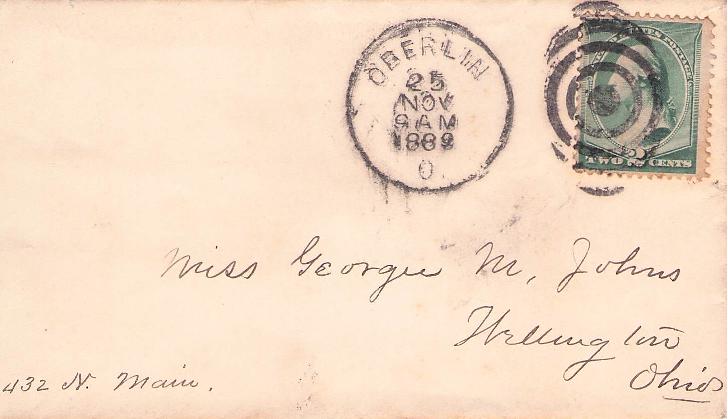 OBERLIN
25
NOV
9 AM
1889
O.
TWO 2 CENTS
Miss Georgie M. Johns
Wellington
Ohio
432 N. Main.